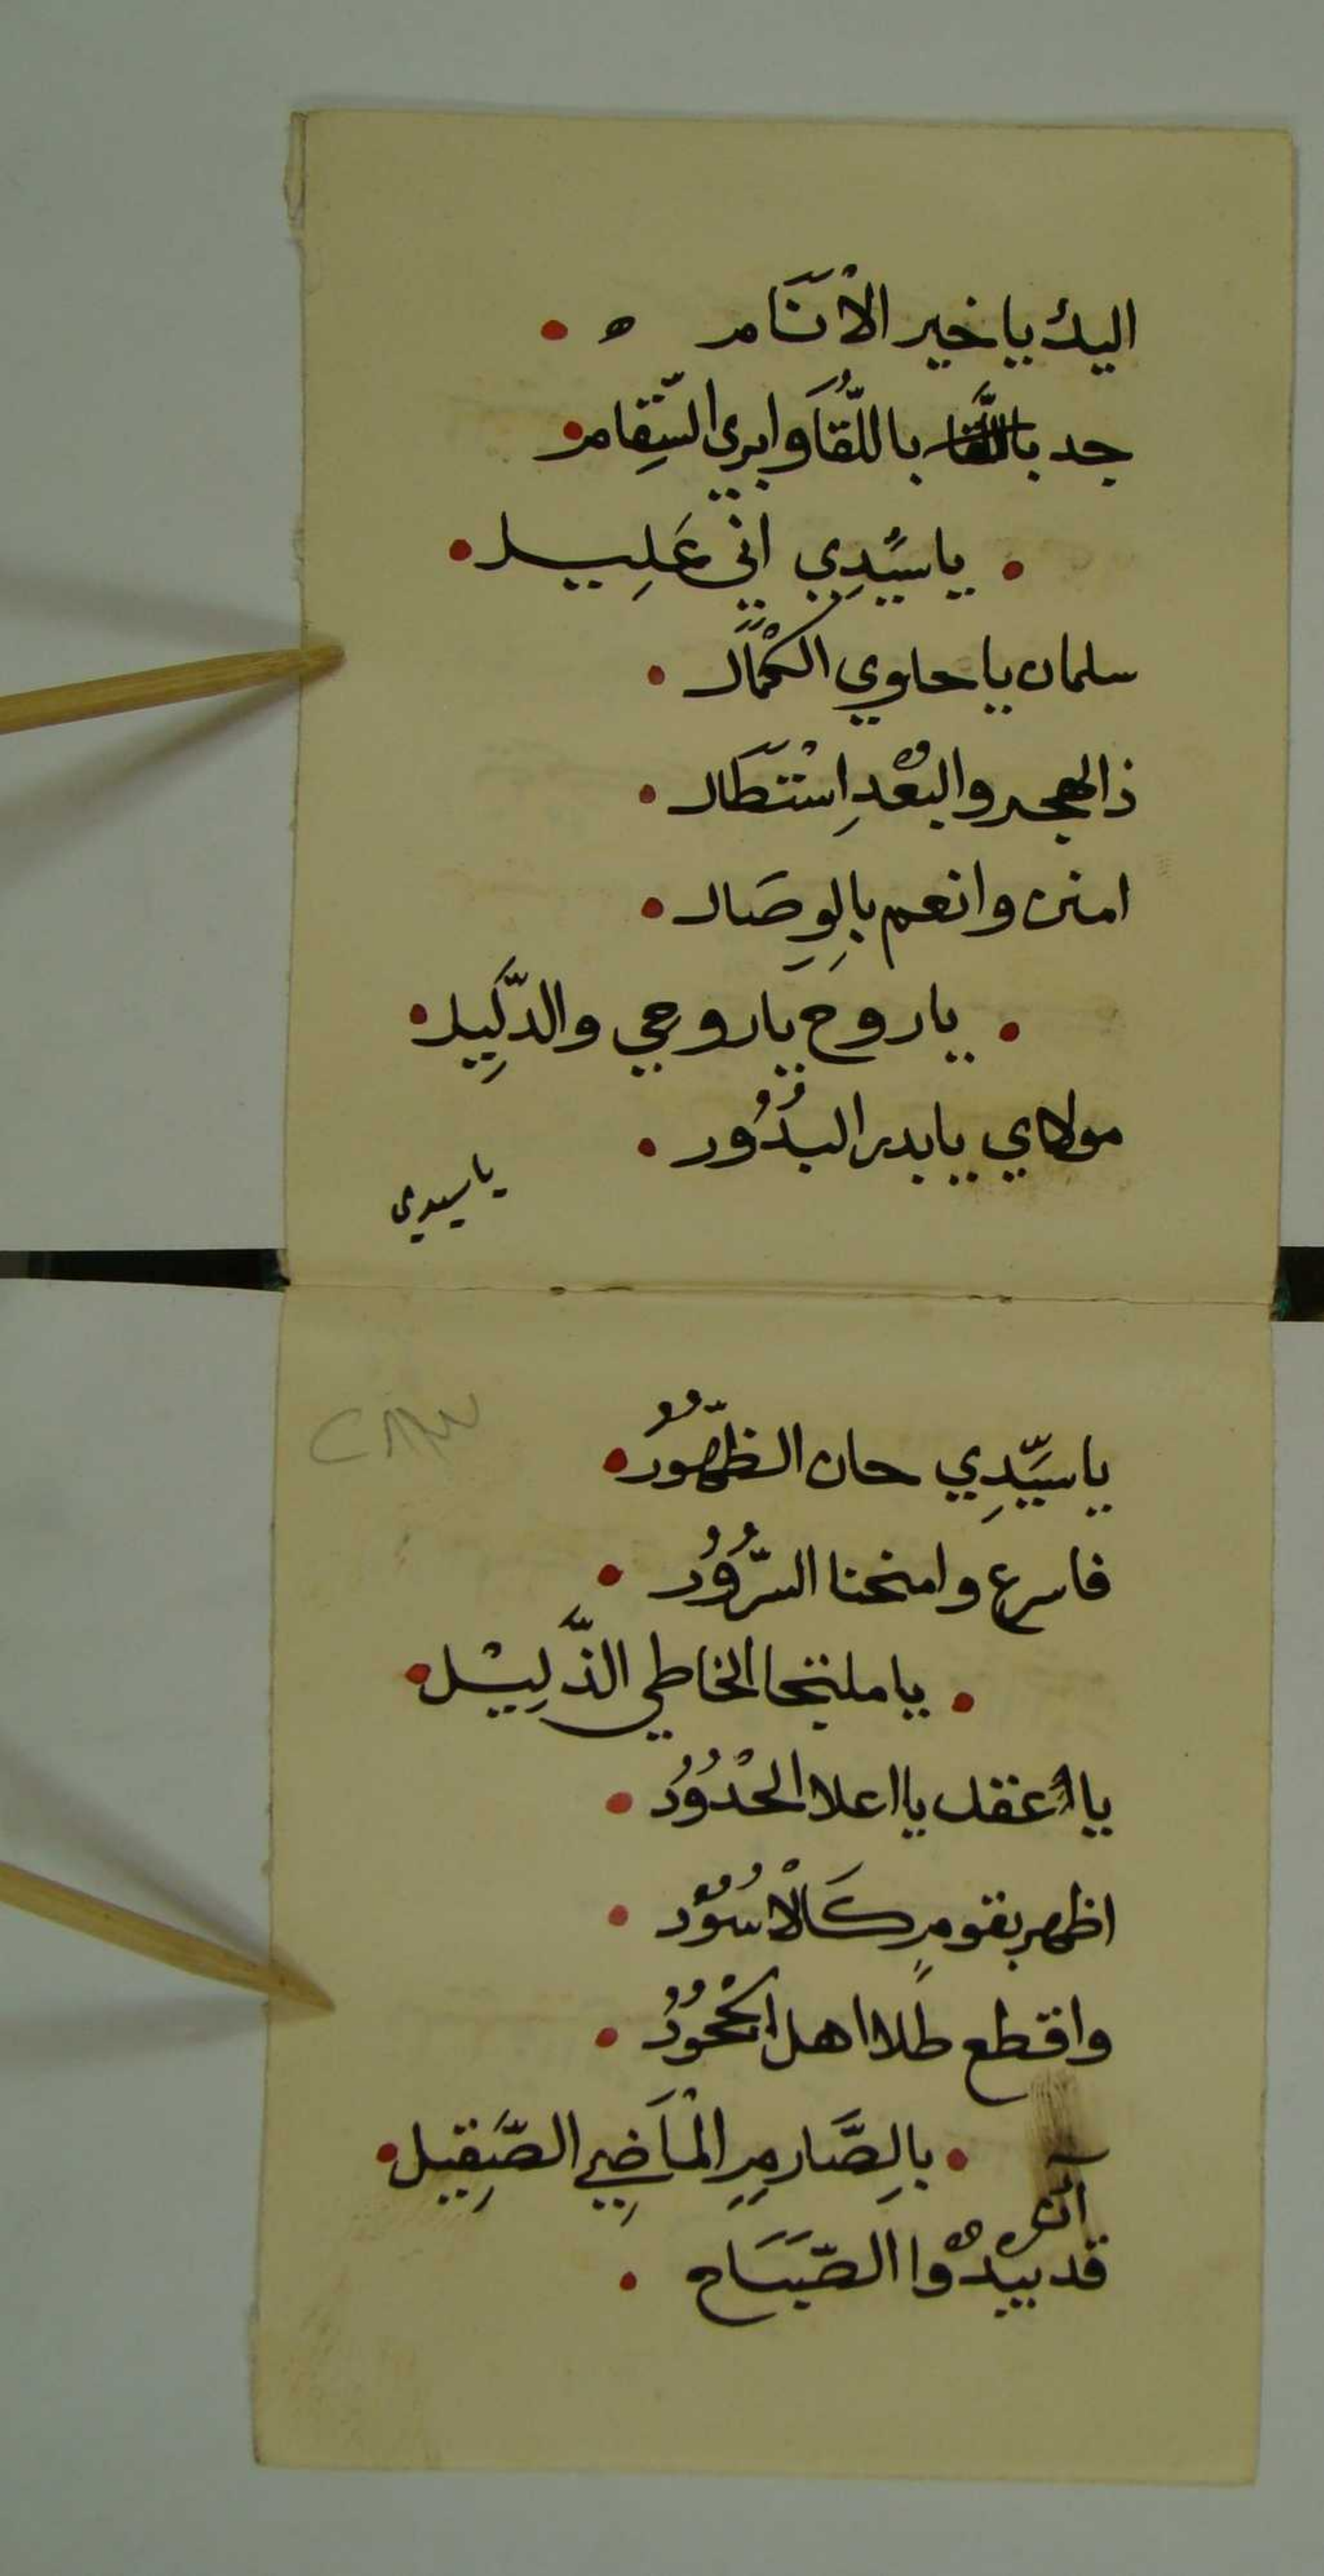 اليك ياخير الْاَنَام ه
جد باللُّقَا وابري السِّقام
ياسيَّدِي اني عَلِيل
سلمان ياحاوي الكمْاَل
ذالهجر والبعْدِ اِسْتَطَال
امنن وانعم بالِوِصَال
ياروح ياروحي والدَّلِيل
مولاي يابدر البدُوُر
ياسيدي
ياسَيِّدِي حان الظهُّوُر
فاسرع وامنحنا السرُّوُر
ياملتجا الخاطي الذَّلِيْل
يا اعقل يااعلا الحْدُوُد
اظهر بقومٍ كَالْاسُوُد
واقطع طلا اهل الجْحُوُد
بالِصَّارمِ الْمَاضِي الصَّقِيل
آن
قد يبدوْا الصَّبَاح